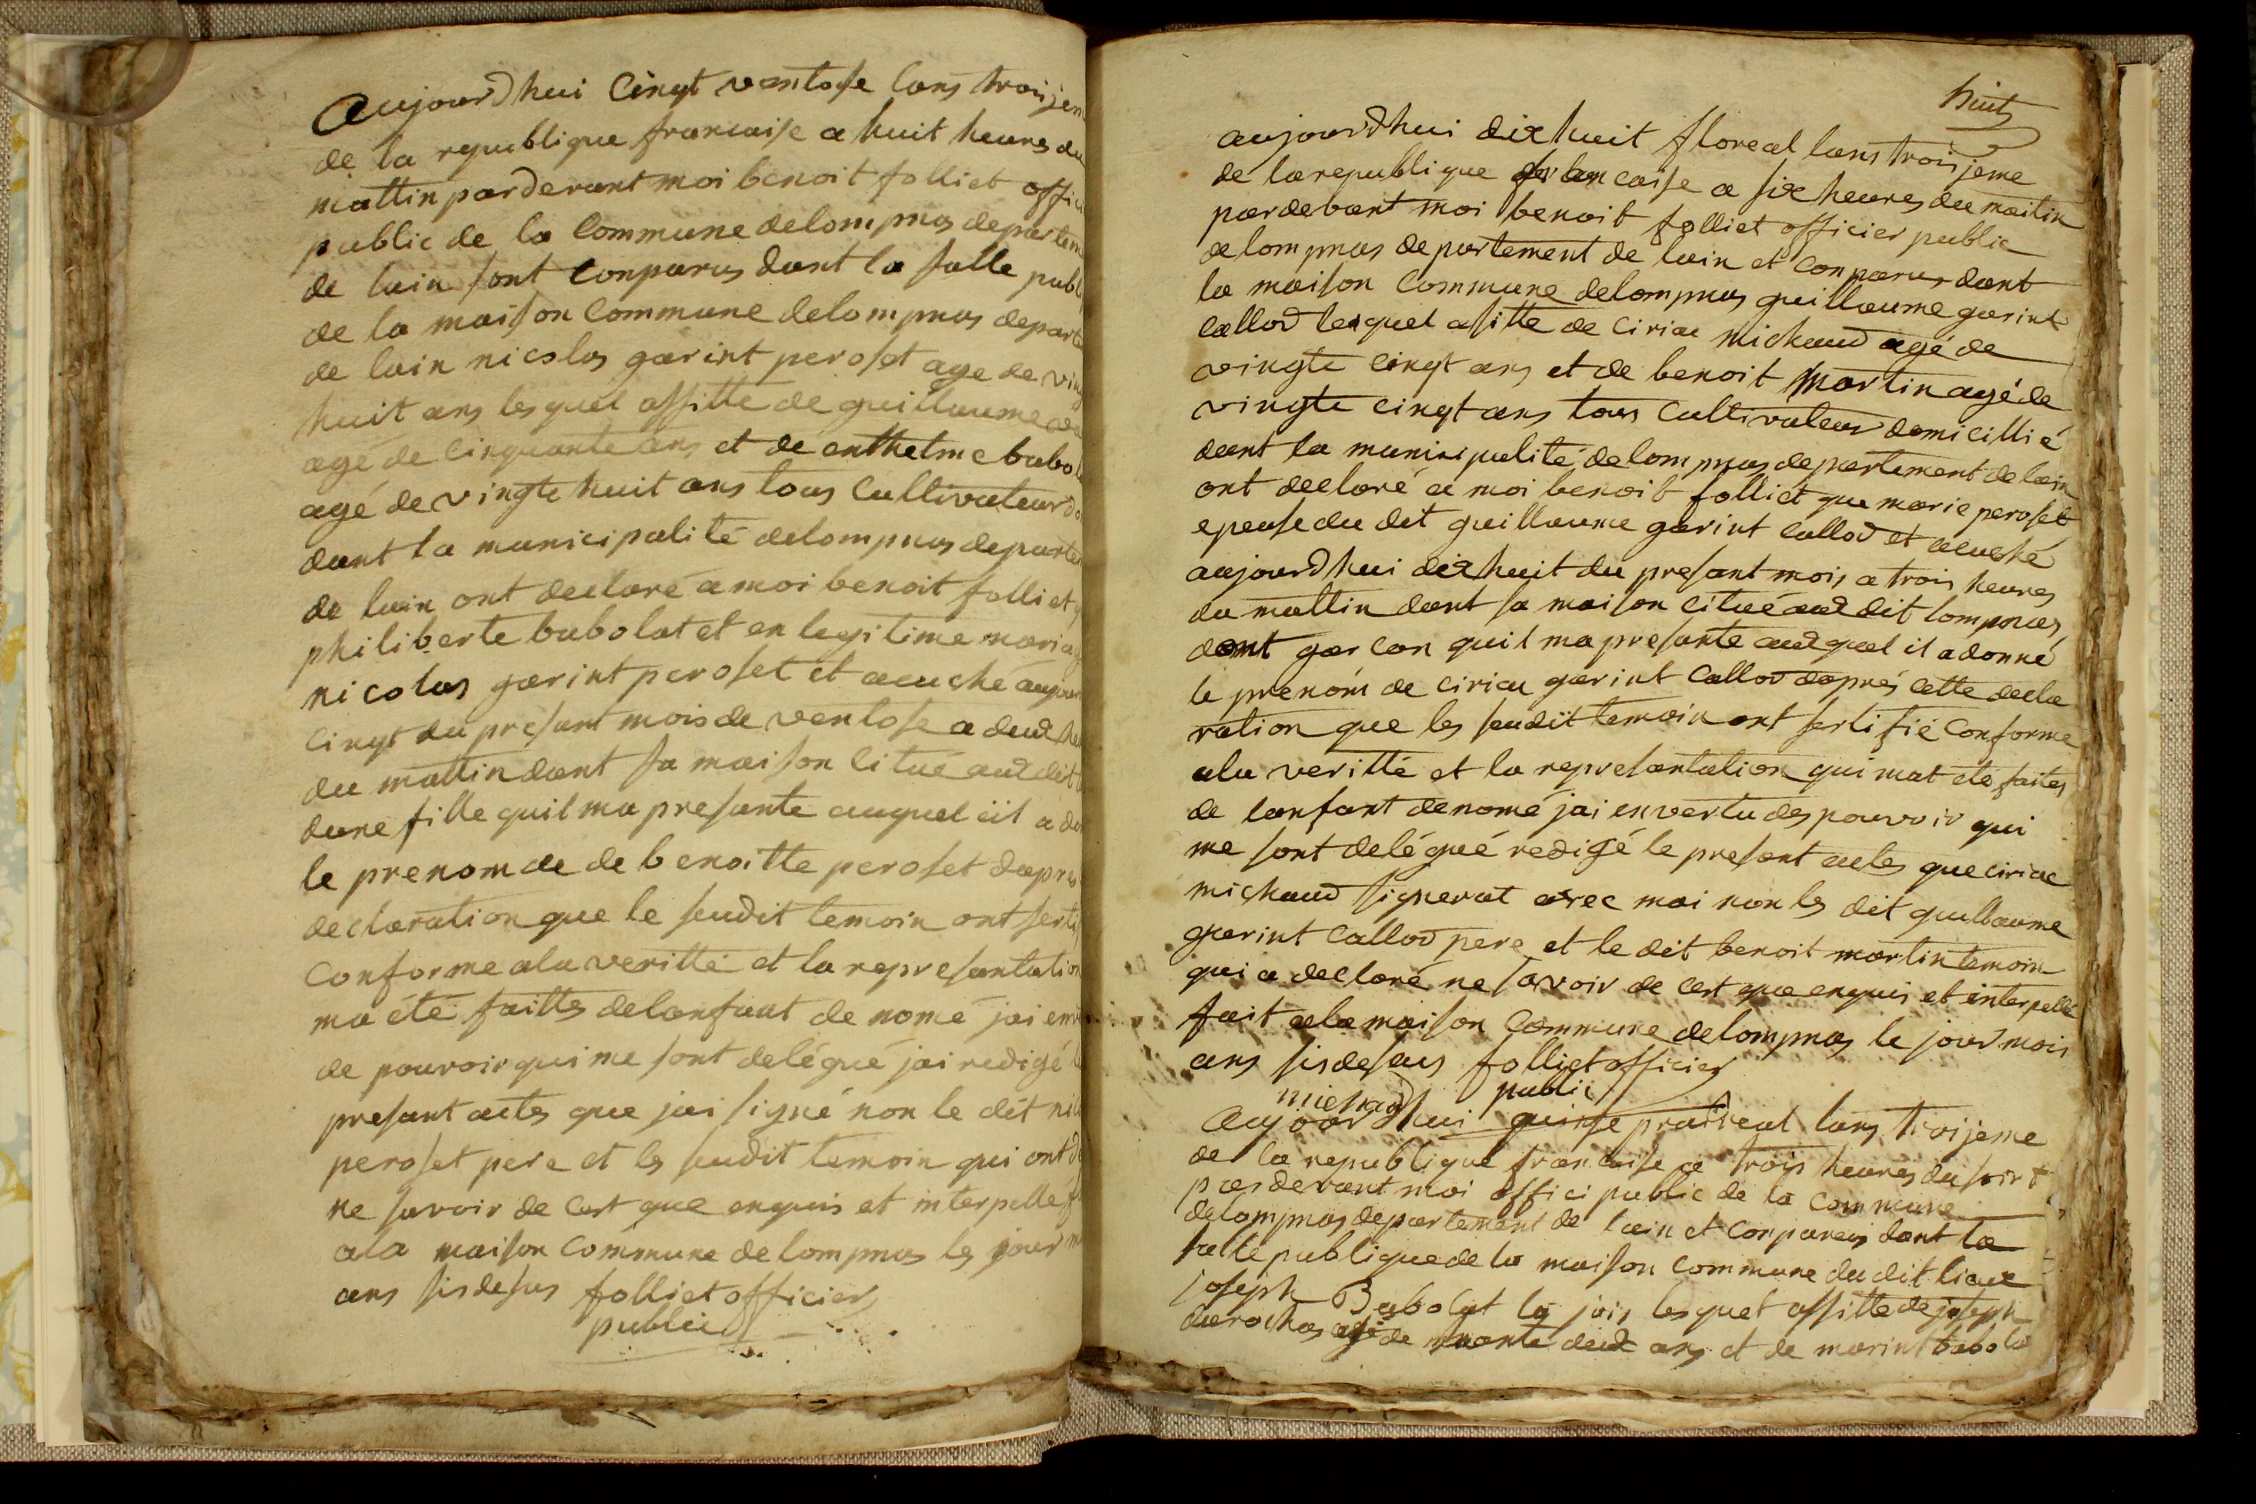 aujourdhui cinqt ventose lans troisjem
de la republique francaise a huit heures du
mattin pardevant moi benoit folliet offici
public de la commune delompnas departem
de lain sont conparus dant la salle publ
de la maison commune delompnas departe
de lain nicolas garint peroset age de ving
huit ans lesquel assitte de guillaume
agé de cinquante ans et de enthelme babola
agé de vingte huit ans tous cultivateur do
dant la municipalité delompnas departe
de lain ont declaré a moi benoit folliet q
philiberte babolat et en legitime mariag
nicolas garint peroset et acuché aujour
cinqt du presant mois de ventose a deux heu
du mattin dant sa maison citué aux dit
dune fille quil ma presante auquel iil a do
le prenom de de benoitte peroset dapres
declaration que le seudit temoin ont serti
conforme ala veritté et la representation
ma été faittes delanfant de nomé jai en
de pouvoir qui me sont delégué jai redigé le
presant actes que jai signé non le dit ni
peroset pere et les seudit temoin qui ont d
ne savoir de cest que enquis et interpellé f
ala maison commune delompnas les jour m
ans sisdesus folliet officier
public
huit
aujourdhui dix huit floreal lans troisjeme
de la republique francaise a six heures du maitin
pardevant moi benoit folliet officier public
delompnas departement de lain et conparus dant
la maison commune delompnas guillaume garint
callod lesquel asitte de ciriac michaud agé de
vingte cinqt ans et de benoit martin agé de
vingte cinqt ans tous cultivateur domicillié
dant la municipalité delompnas departement de lain
ont declaré a moi benoit folliet que marie peroset
epeuse du dit guillaume garint callod et acuché
aujourdhui dix huit du presant mois a trois heures
du mattin dant sa maison citué aux dit lompnas
dont garcon quil ma presante aux quel il a donné
le prenom de ciriac garint callod daprés cette decla
ration que les seudit temoin ont sertifié conforme
ala veritté et la represantation qui mat eté faites
de lanfant denomé jai en vertu des pouvoir qui
me sont delégué redigé le presant actes que ciriac
michaud signerat avec moi non les dit guillaume
garint callod pere et le dit benoit martin temoin
qui a declaré ne savoir de cest que enquis et interpellé
fait ala maison commune delompnas le jour mois
ans sisdesus folliet officier
michaud public
aujourdhui quinse praireal lans troisjeme
de la republique francaise a trois heures du soirt
pardevant moi offici public de la commune
delompnas departement de lain et conparus dant la
salle publique de la maison commune du dit lieux
joseph Babolat la jois lesquel assitte de joseph
darochas agé de deux ans et de marint babola